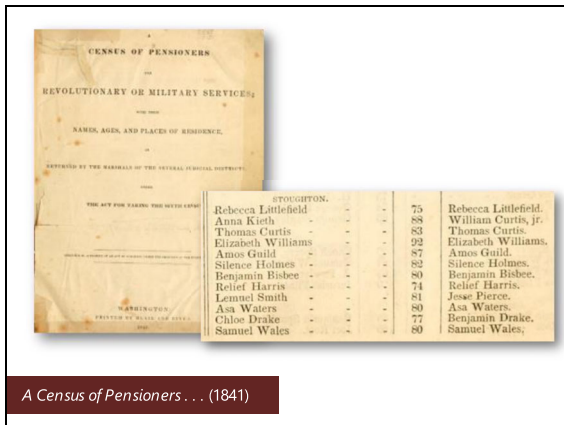 A
CENSUS OF PENSIONERS
FOR
REVOLUTIONARY OR MILITARY SERVICES;
WITH THEIR
NAMES, AGES, AND PLACES OF RESIDENCE,
AS
RETURNED BY THE MARSHALS OF THE SEVERAL JUDICIAL DISTRICTS,
UNDER
THE ACT FOR TAKING THE SIXTH CENSUS
WASHINGTON:
PRINTED BY BLAIR AND RIVES.
STOUGHTON.
Rebecca Littlefield - - 75 Rebecca Littlefield.
Anna Kieth - - - 88 William Curtis, jr.
Thomas Curtis - - - 83 Thomas Curtis.
Elizabeth Williams - - - 92 Elizabeth Williams.
Amos Guild - - - 87 Amos Guild.
Silence Holmes - - - 82 Silence Holmes.
Benjamin Bisbee - - - 80 Benjamin Bisbee.
Relief Harris - - - 74 Relief Harris.
Lemuel Smith - - - 81 Jesse Pierce.
Asa Waters - - - 80 Asa Waters.
Chloe Drake - - - 77 Benjamin Drake.
Samuel Wales - - - 80 Samuel Wales.
A Census of Pensioners . . . (1841)